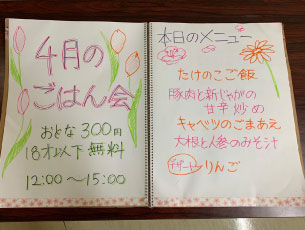 4月の
ごはん会
おとな300円
18才以下 無料
12:00～15:00
本日のメニュー
たけのこご飯
豚肉と新じゃがの
甘辛炒め
キャベツのごまあえ
大根と人参のみそ汁
デザート りんご